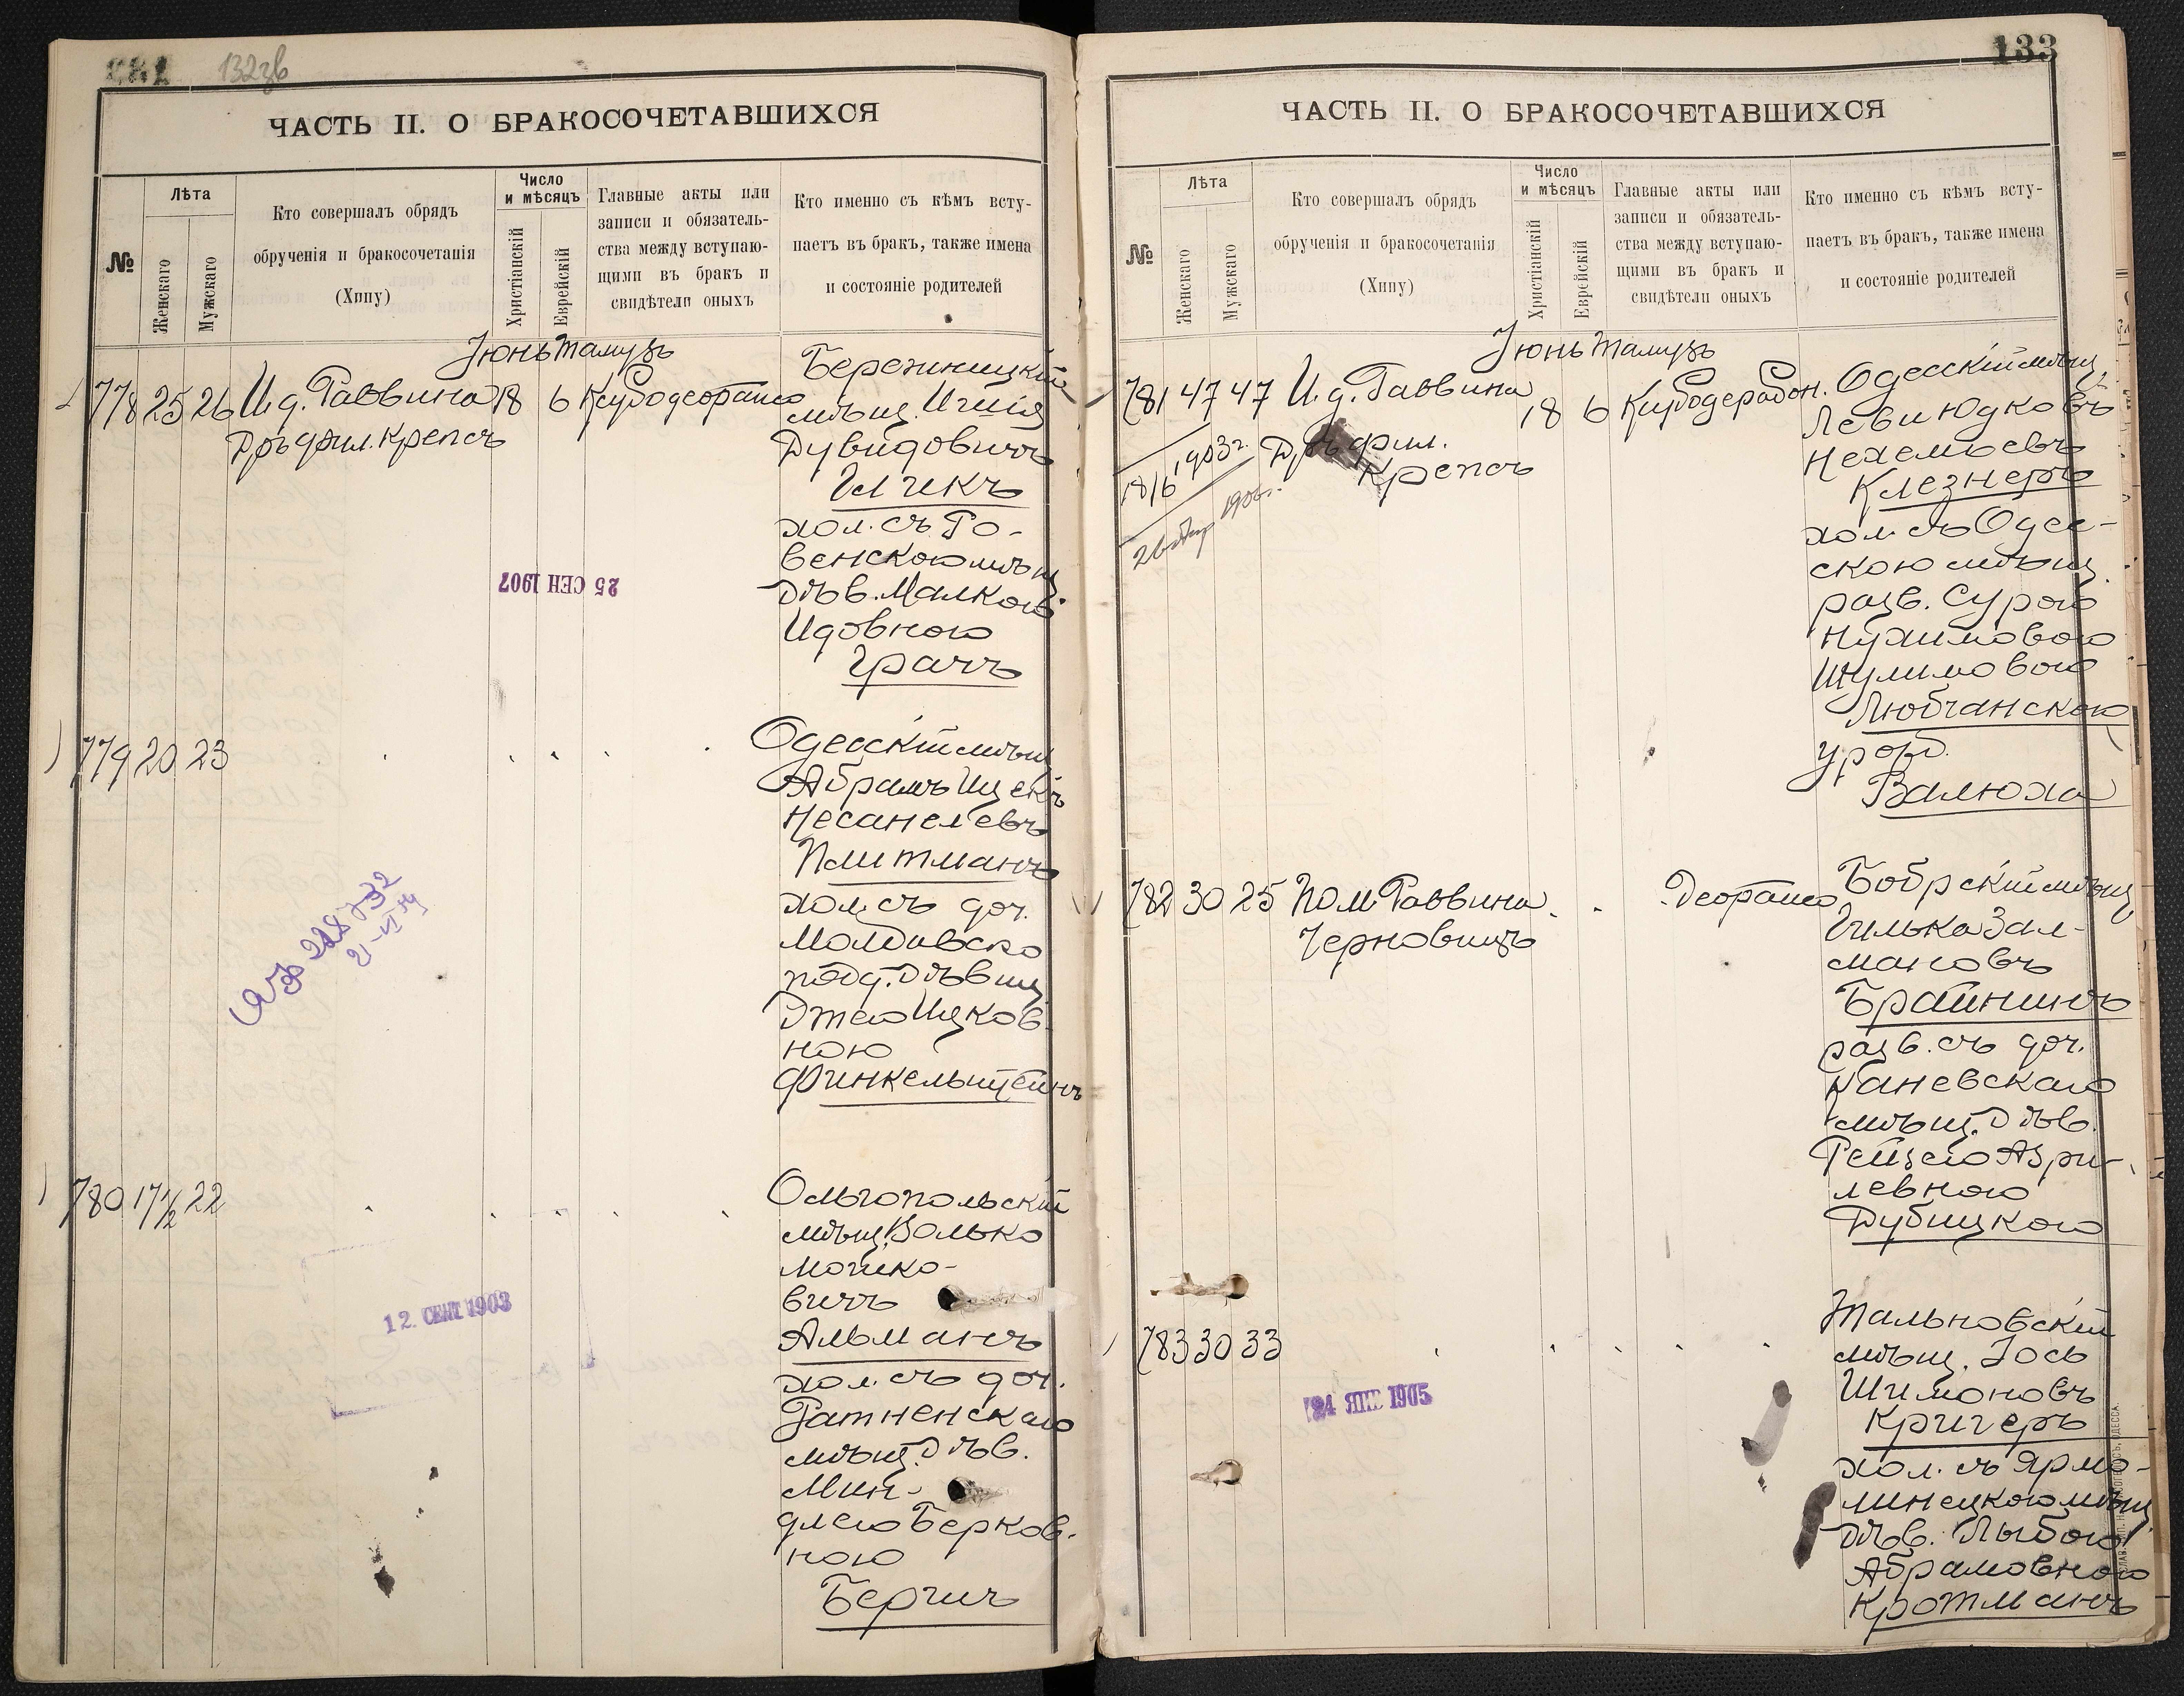 132зв
ЧАСТЬ II. О БРАКОСОЧЕТАВШИХСЯ
№
Лѣта
Женскаго
Мужскаго
Кто совершалъ обрядъ
обрученія и бракосочетанія
(Хипу)
Число
и мѣсяцъ
Христіанскій
Еврейскій
Главные акты или
записи и обязатель-
ства между вступаю-
щими въ бракъ и
свидѣтели оныхъ
Кто именно съ кѣмъ всту-
паетъ въ бракъ, также имена
и состояніе родителей
Іюнь Тамузъ
778 25 26 И. д. Раввина 18 6
Дръ фил. Крепсъ
мѣщ.
Дувидовичъ
хол. съ Ро-
венскою мѣщ.
дѣв. Малкою
Идовною
Грачъ
25 СЕН 1907
779 20 23
Одесскій мѣщ.
Абрамъ Ицекъ
Несанелевъ
Плитманъ
хол. съ доч.
Молдавско
подд. дѣвиц.
Этею Ицков-
ною
Финкельштейнъ
780 17 1/2 22
Ольгопольскій
мѣщ. Волько
Мошко-
вичъ
Альманъ
хол. съ доч.
Ратненскаго
мѣщ. дѣв.
Мин-
длею Берков-
ною
Бергич
12 СЕНТ 1903
133
ЧАСТЬ II. О БРАКОСОЧЕТАВШИХСЯ
№
Лѣта
Женскаго
Мужскаго
Кто совершалъ обрядъ
обрученія и бракосочетанія
(Хипу)
Число
и мѣсяцъ
Христіанскій
Еврейскій
Главные акты или
записи и обязатель-
ства между вступаю-
щими въ бракъ и
свидѣтели оныхъ
Кто именно съ кѣмъ всту-
паетъ въ бракъ, также имена
и состояніе родителей
Іюнь Тамузъ
781 47 47 И. д. Раввина 18 6
Дръ фил.
Крепсъ
18/6 1903 г.
1906 г.
Одесскій мѣщ.
Леви Юдковъ
Нехемьевъ
Клезнеръ
хол. съ Одес-
скою мѣщ.
разв. Сурою
Нухимовою
Шулимовою
Любчанскою
урожд.
Валюха
782 30 25 Пом. Раввина
Черновицъ
Бобрскій мѣщ.
Гилька Зал-
мановъ
Брайнинъ
разв. съ доч.
Каневскаго
мѣщ. дѣв.
Рейзею Азри-
левною
Дубицкою
783 30 33
Тальновскій
мѣщ. Іось
Шимоновъ
Кригеръ
хол. съ Ярмо-
линецкою мѣщ.
дѣв. Лыбою
Абрамовною
Кротманъ
24 ЯНВ 1905